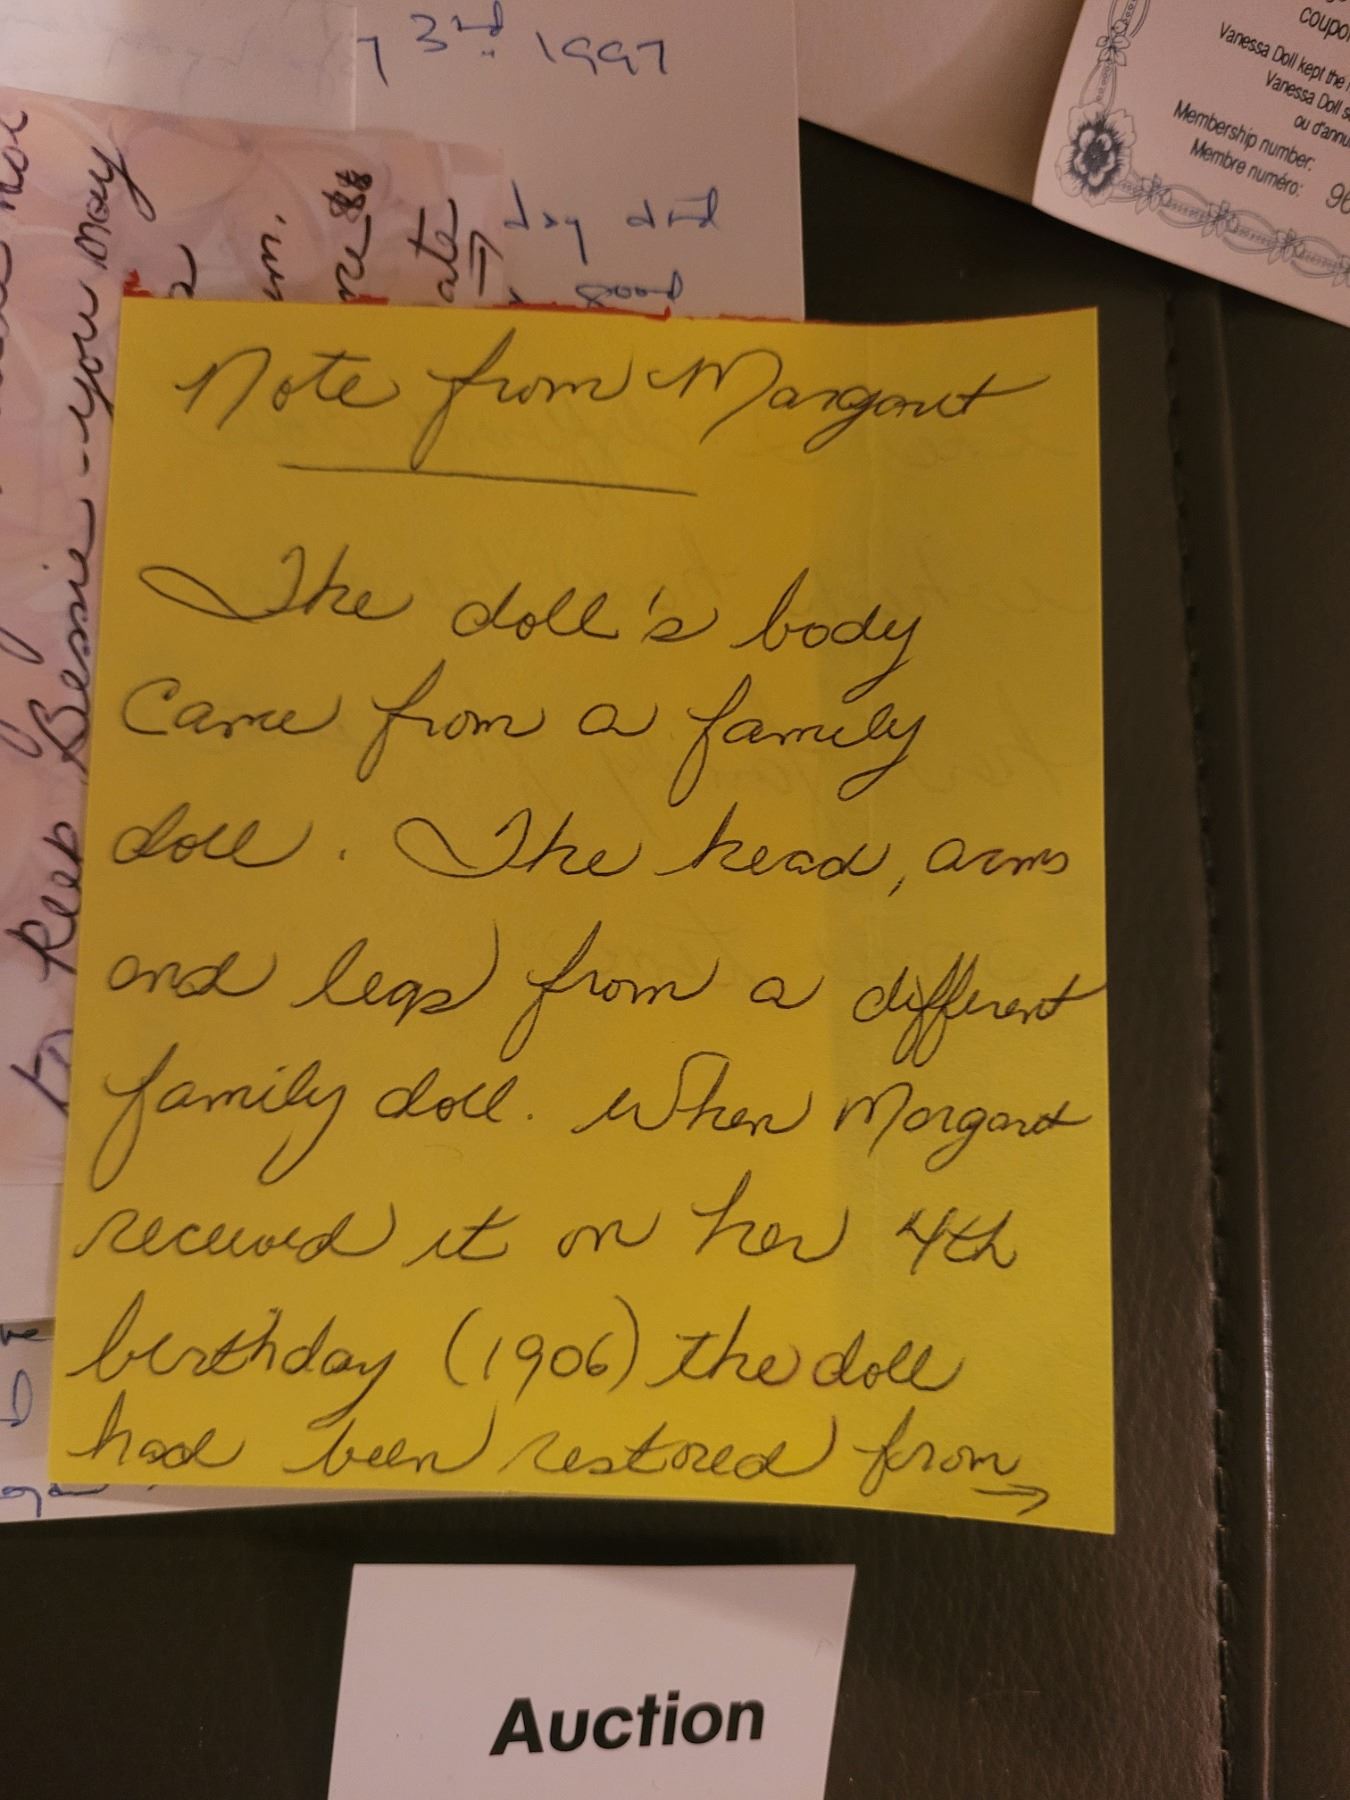 3rd 1997
day and
good
coupo
Vanessa Doll kept the
Vanessa Doll s
ou d'annu
Membership number:
Membre numéro: 96
to keep Bessie - you may
ate →
Note from Margaret
The doll's body
came from a family
doll. The head, arms
and legs from a different
family doll. When Margaret
received it on her 4th
birthday (1906) the doll
had been restored from
→
Auction